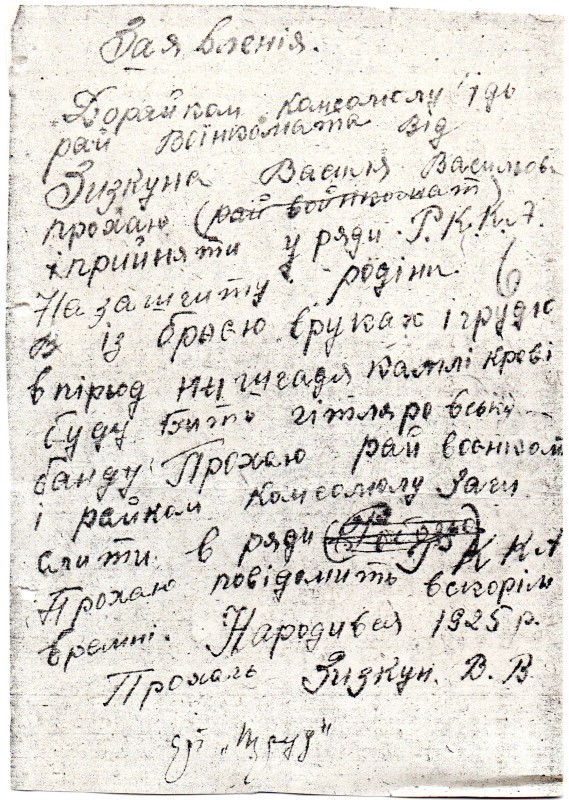 Зая вленія.
Дорайком комсомолу ідо
рай Воінкомата від
Зизкуна Василя Васильов
прохаю (рай войнкомат)
іприйняти у ряди. Р.К.К.А.
На защиту родіни.
в із броєю вруках і грудю
впірьод ни щадя каплі крові
буду бить гітляровські
банду Прохаю рай воєнком
і райком комсомолу Зачи
слити в ряди РККА
Прохаю повідомить вскорім
времні. Народиввя 1925 р.
Прохаль Зизкун. В. В